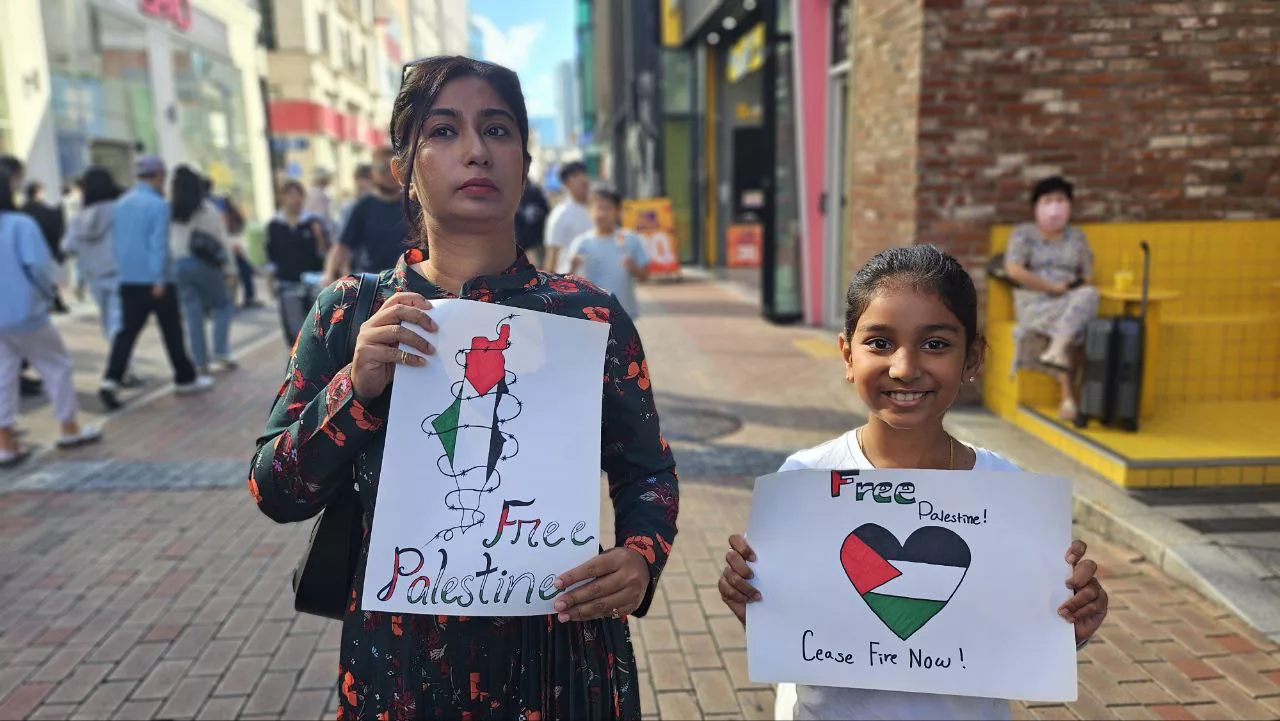 Free
Palestine
Free
Palestine!
Cease Fire Now!